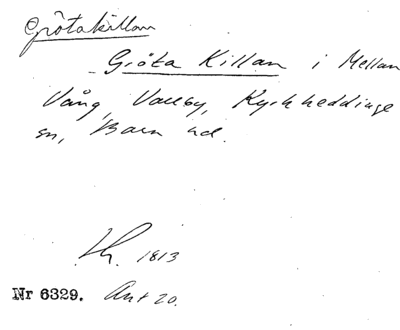 Grötakillan
Gröta Killan i Mellan
Vång, Vallby, Kyrkheddinge
sn, Bara hd.
Lh. 1813
Nr 6329. Ant 20.